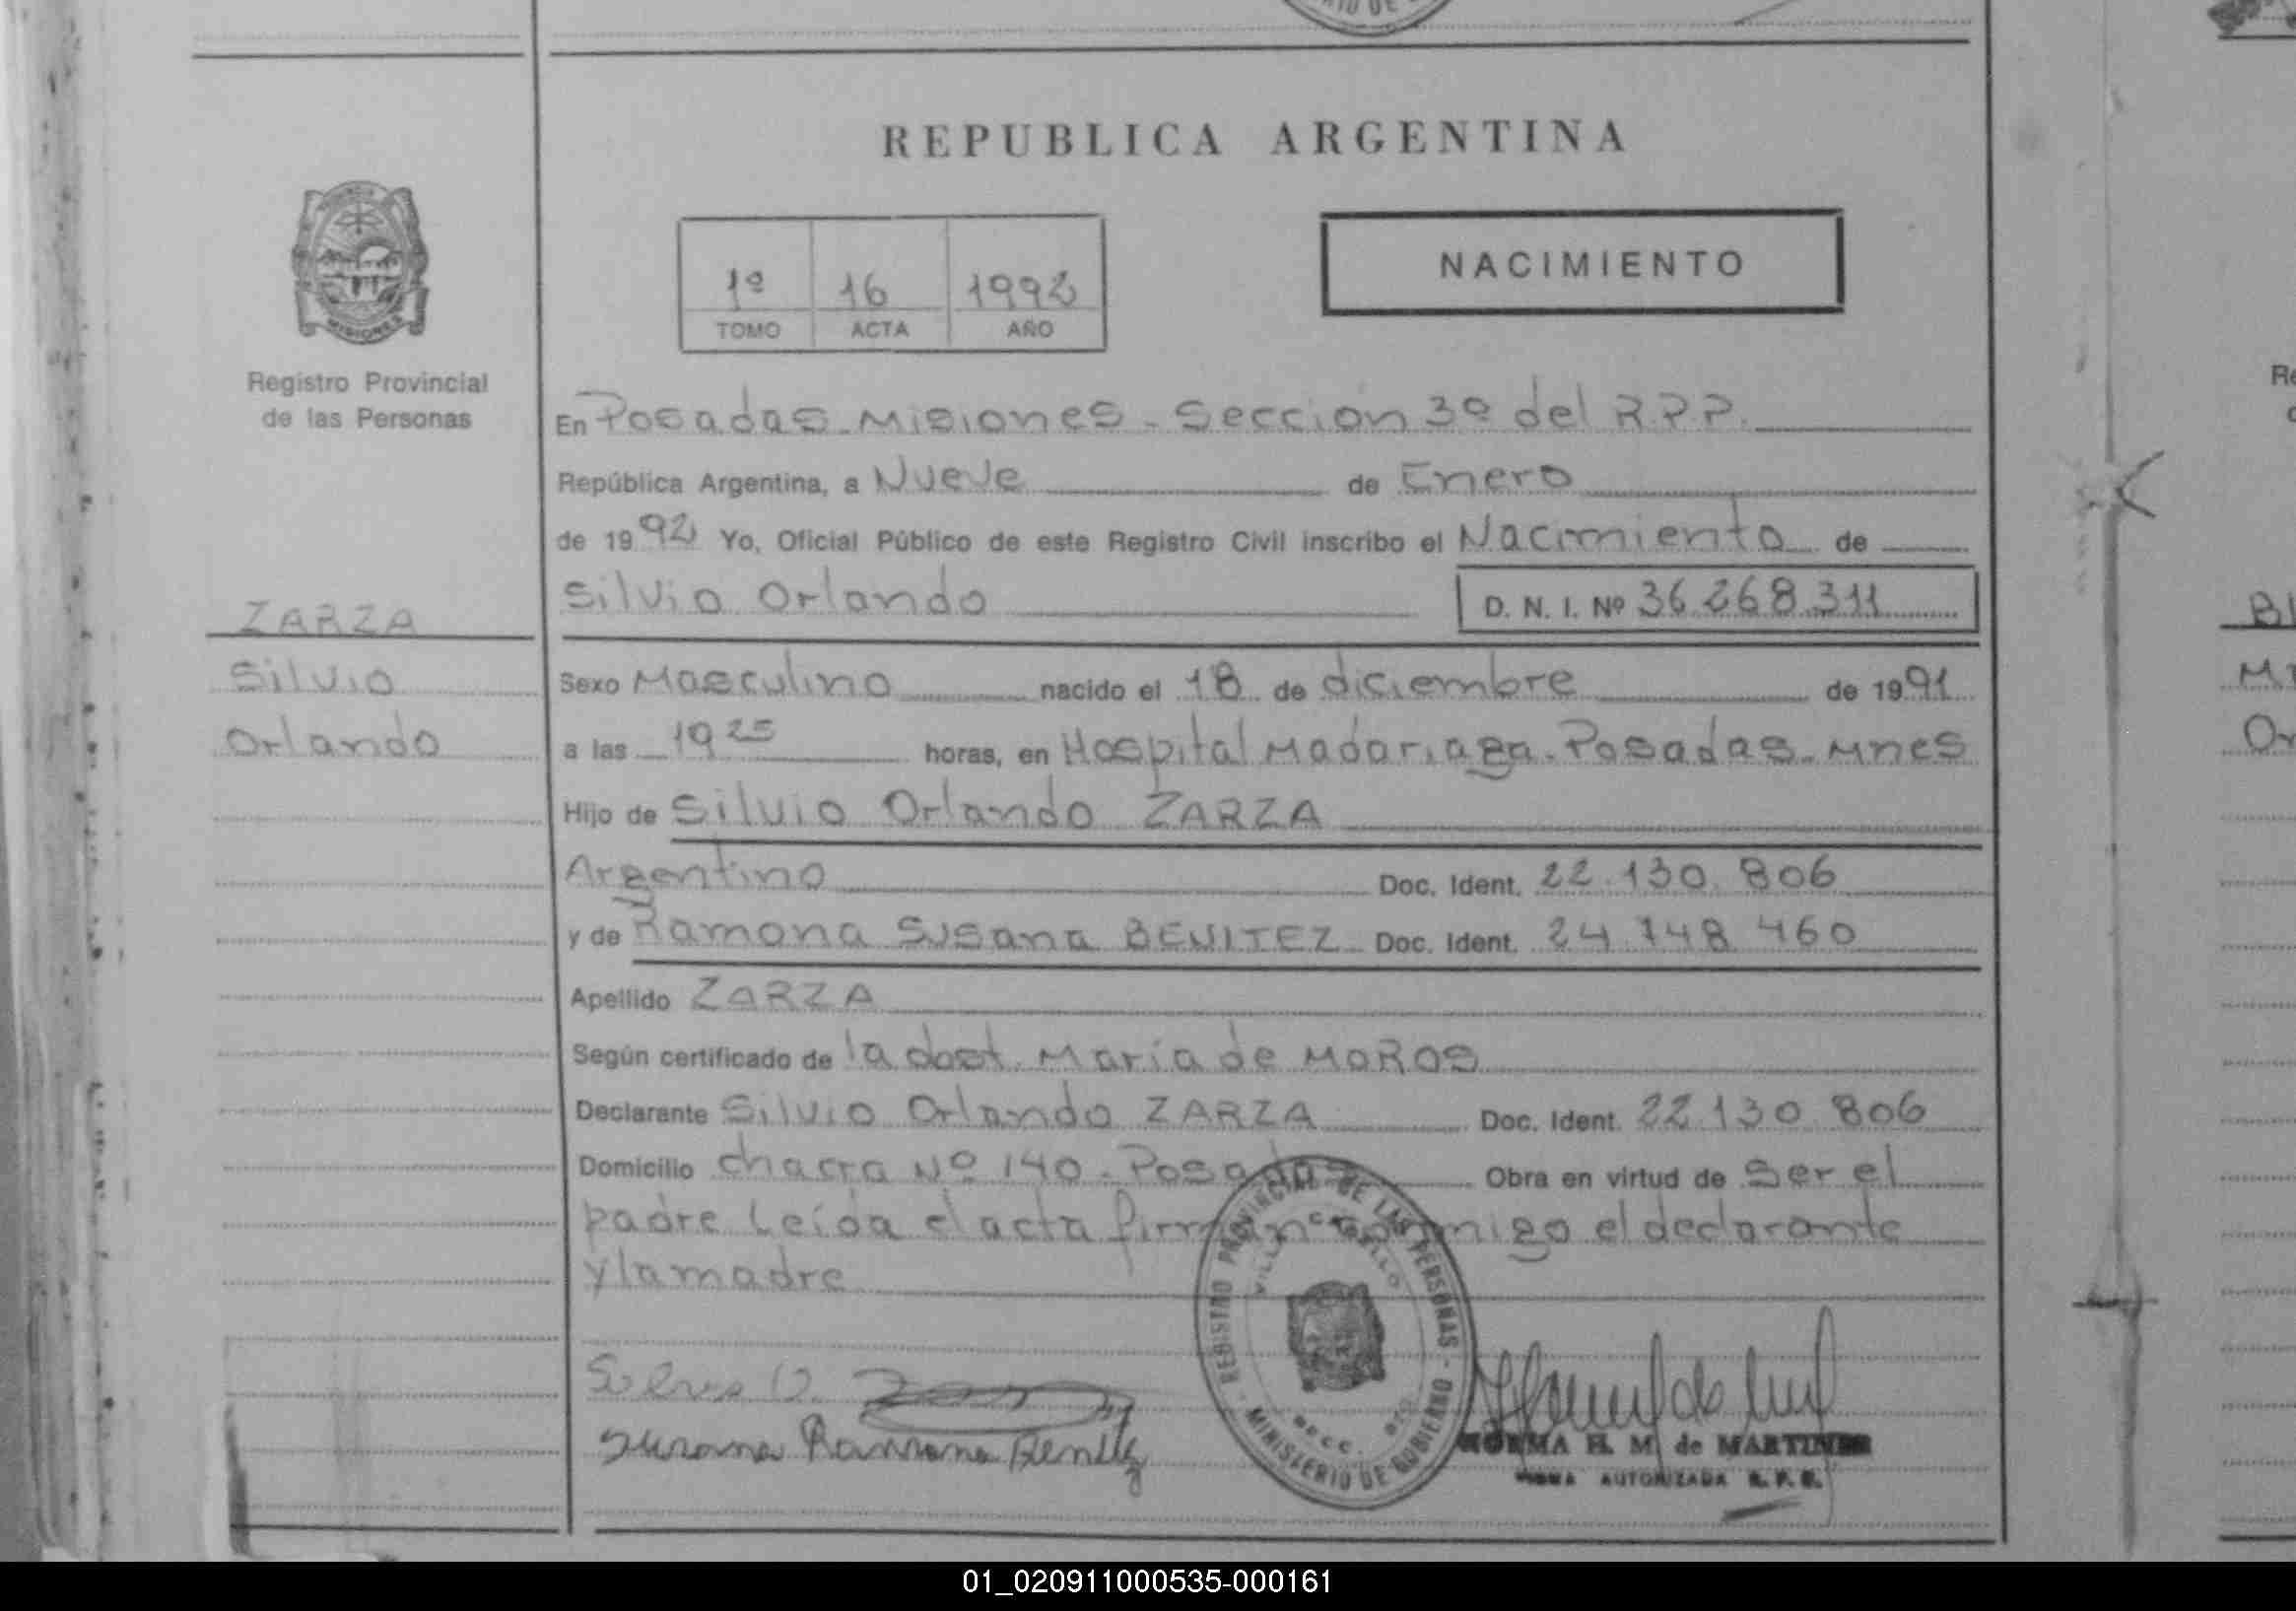 REPUBLICA ARGENTINA
NACIMIENTO
1º 16 1992
TOMO ACTA AÑO
MISIONES
Registro Provincial
de las Personas
En Posadas - Misiones - Seccion 3º del R.P.P.
República Argentina, a Nueve de Enero
de 1992 Yo, Oficial Público de este Registro Civil inscribo el Nacimiento de
Silvio Orlando D. N. I. Nº 36.268.311
ZARZA
Silvio
Orlando
Sexo Masculino nacido el 18 de diciembre de 1991
a las 19 25 horas, en Hospital Madariaga - Posadas - Mnes
Hijo de Silvio Orlando ZARZA
Argentino Doc. Ident. 22.130.806
y de Ramona Susana BENITEZ Doc. Ident. 24.748.460
Apellido ZARZA
Según certificado de la dost. María de MOROS
Declarante Silvio Orlando ZARZA Doc. Ident. 22.130.806
Domicilio chacra Nº 140 - Posadas Obra en virtud de ser el
padre Leída el acta firman conmigo el declarante
y la madre
REGISTRO PROVINCIAL DE LAS PERSONAS - MINISTERIO DE GOBIERNO
Silvio O. Zarza
Susana Ramona Benitez
NORMA H. M. de MARTINEZ
FIRMA AUTORIZADA R. P. P.
01_020911000535-000161